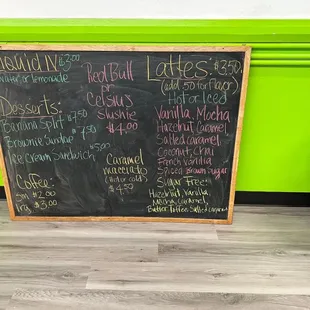 Liquid IV $3.00
Water or lemonade
Desserts:
Banana Split $7.50
Brownie Sundae $7.50
Ice Cream Sandwich $5.00
Coffee:
Sm $2.00
Lrg $3.00
Red Bull
or
Celsius
Slushie
$4.00
Caramel
macciato
(Hot or cold)
$4.50
Lattes: $3.50
(add .50 for flavor)
Hot or Iced
Vanilla, Mocha
Hazelnut, Caramel,
Salted caramel
Coconut, Chai
French Vanilla
Spiced Brown Sugar
Sugar Free:
Hazelnut, Vanilla,
Mocha, Caramel,
Butter Toffee, Salted Caramel